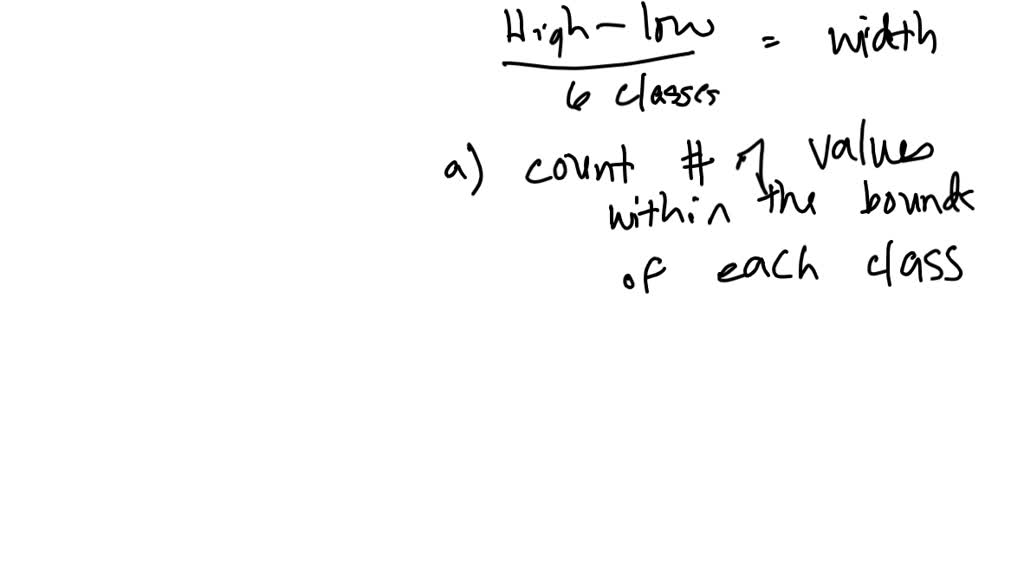 High - low = width
6 classes
a) count # of values
within the bounds
of each class